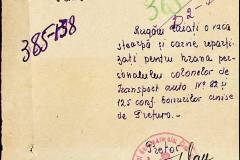 385-138
Rugăm dăiati o vacă
stearpă și carne reparti-
zati pentru hrana per-
sonalului coloanelor de
Transport auto No 82 și
125 conf. bonurilor emise
de Pretura.
Pretor